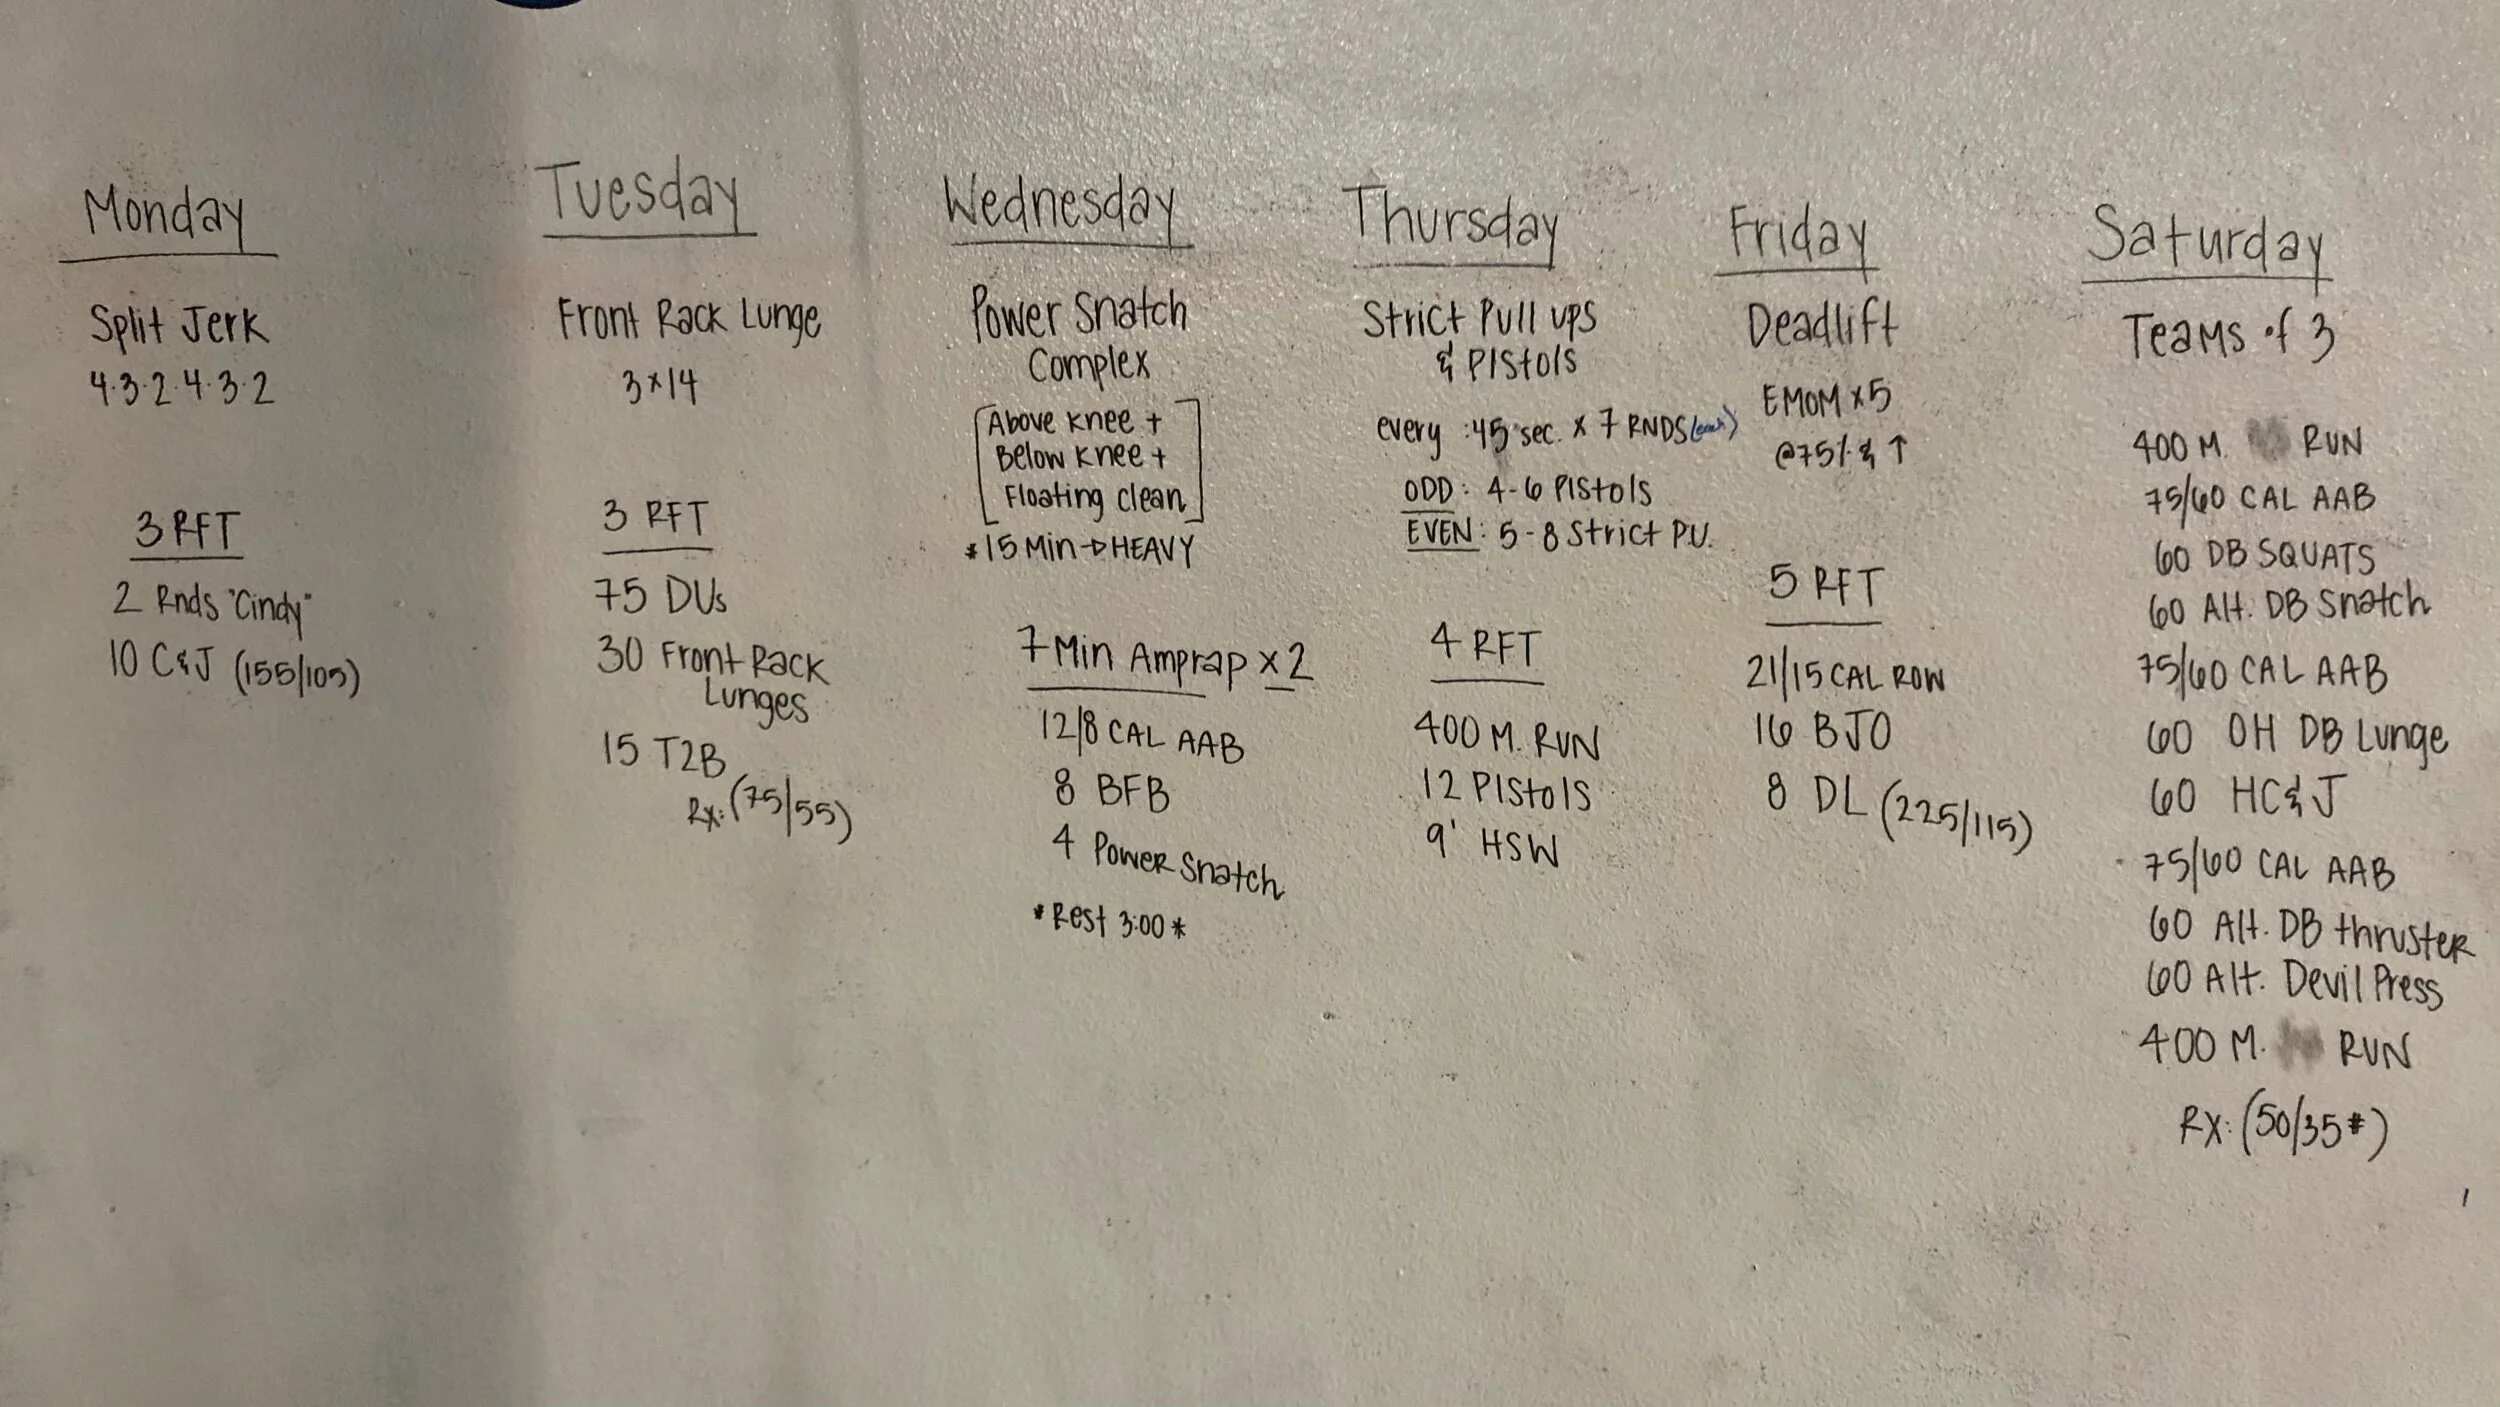 Monday
Split Jerk
4.3.2.4.3.2
3 RFT
2 Rnds "Cindy"
10 C&J (155/105)
Tuesday
Front Rack Lunge
3x14
3 RFT
75 DUs
30 Front Rack
Lunges
15 T2B
Rx: (75/55)
Wednesday
Power Snatch
Complex
[Above knee +
Below knee +
Floating clean]
*15 Min → HEAVY
7 Min Amprap x 2
12/8 CAL AAB
8 BFB
4 Power Snatch
*Rest 3:00*
Thursday
Strict Pull ups
& Pistols
every :45 sec. x 7 RNDS (each)
ODD: 4-6 Pistols
EVEN: 5-8 Strict P.U.
4 RFT
400 M. RUN
12 Pistols
9' HSW
Friday
Deadlift
EMOM x 5
@75% & ↑
5 RFT
21/15 CAL ROW
16 BJO
8 DL (225/115)
Saturday
Teams of 3
400 M. RUN
75/60 CAL AAB
60 DB SQUATS
60 Alt. DB Snatch
75/60 CAL AAB
60 OH DB Lunge
60 HC&J
75/60 CAL AAB
60 Alt. DB thruster
60 Alt. Devil Press
400 M. RUN
RX: (50/35#)